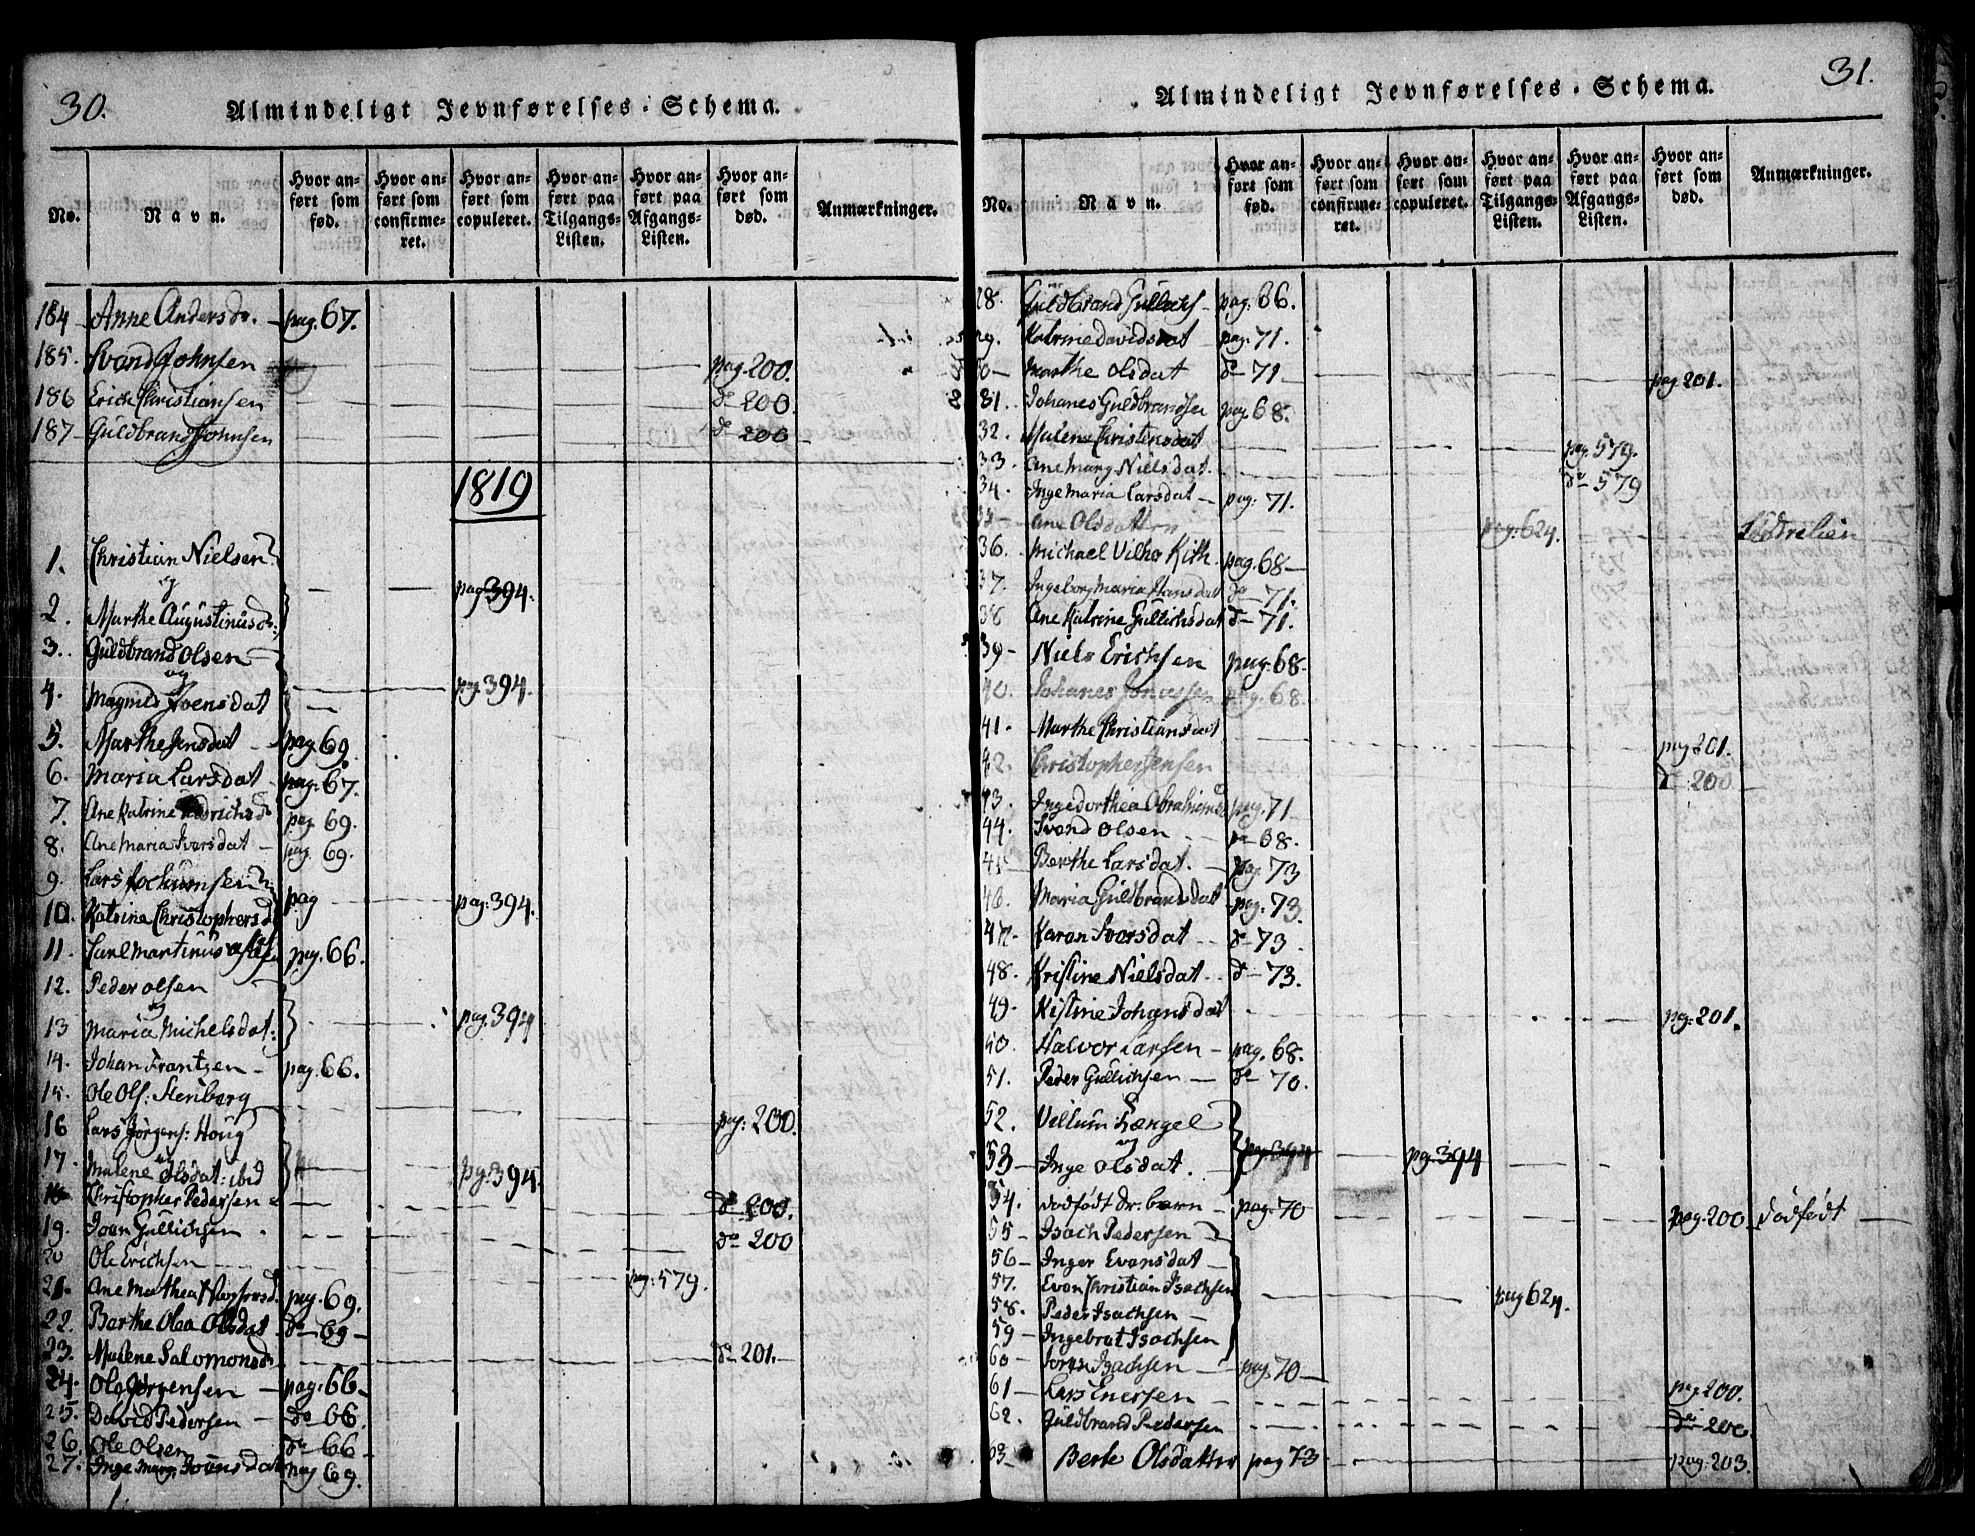 30.
Almindeligt Jevnførelses-Schema.
No.
Navn.
Hvor anført som fød.
Hvor anført som confirmeret.
Hvor anført som copuleret.
Hvor anført paa Tilgangs-Listen.
Hvor anført paa Afgangs-Listen.
Hvor anført som død.
Anmærkninger.
184 Anne Andersdr. pag. 67.
185. Svend Johnsen pag. 200.
186 Erich Christiansen do 200.
187 Guldbrand Johnsen do 200
1819
1. Christian Nielsen
og pag. 394.
2. Marthe Augustinusdr:
3. Guldbrand Olsen
og pag. 394.
4. Magnild Joensdat
5. Marthe Jensdat pag. 69.
6. Maria Larsdat pag. 67.
7. Ane Katrine pag. 69.
8. Ane Maria Iversdat pag. 69.
9. Lars Jochumsen
pag pag. 394.
10. Katrine Christophersd
11. Carl Martinus pag. 66.
12. Peder Olsen
og pag. 394
13 Maria Michelsdat:
14. Johan Frantzen pag. 66.
15. Ole Ols: Stenberg pag: 200.
16 Lars Jørgens: Houg
og pag. 394.
17. Malene Olsdat: ibid
18 Christopher Pedersen do 200.
19. Joen Gullichsen do 200
20 Ole Erichsen pag: 579.
21. Ane Mathea pag. 69.
22. Berthe Olea Olsdat do 69
23. Malene Salomonsd do 201.
24. Ole Jørgensen pag: 66
25. David Pedersen do 66.
26. Ole Olsen do 66
27. Inge Marg. Joensdat pag 69.
31.
Almindeligt Jevnførelses-Schema.
No.
Navn.
Hvor anført som fød.
Hvor anført som confirmeret.
Hvor anført som copuleret.
Hvor anført paa Tilgangs-Listen.
Hvor anført paa Afgangs-Listen.
Hvor anført som død.
Anmærkninger.
28. Guldbrand pag: 66.
29. Katrine Davidsdat pag. 71.
30 Marthe Olsdat do 71 pag. 201.
31. Johanes Guldbrandsen pag. 68.
32. Malene Christensdat pag. 579.
33. Ane Marg Nielsdat. do 579
34. Inge Maria Larsdat pag: 71.
35 Ane Olsdatter pag: 624.
36. Michael Vilhr Kith. pag. 68
37. Ingeborg Maria Hansdat do 71.
38 Ane Katrine Gullichsdat do 71.
39 Niels Erichsen pag. 68.
40. Johanes Jonassen pag. 68.
41. Marthe Christiansdat pag 201.
42. Christopher Jensen do 200
43. Inge Dorthea pag. 71
44. Svend Olsen do 68.
45 Berthe Larsdat. pag. 73
46. Maria Guldbransdat pag. 73.
47. Karen Iversdat do 73
48. Kristine Nielsdat do 73.
49. Kistine Johansdat pag: 201.
50. Halvor Larsen pag. 68.
51. Peder Gullichsen do 70.
52. Villum Længel
og pag 394 pag. 394
53 Inge Olsdat.
54. dødfødt Dr. barn pag. 70 pag. 200 dødfødt
55 Isach Pedersen
56 Inger Evansdat
57. Even Christian Isachsen pag 624.
58. Peder Isachsen
59 Ingebret Isachsen
60 Isachsen pag. 70
61 Lars Enersen pag. 200.
62. Guldbrand Pedersen do 200.
63 Berte Olsdatter pag 73 pag. 203.